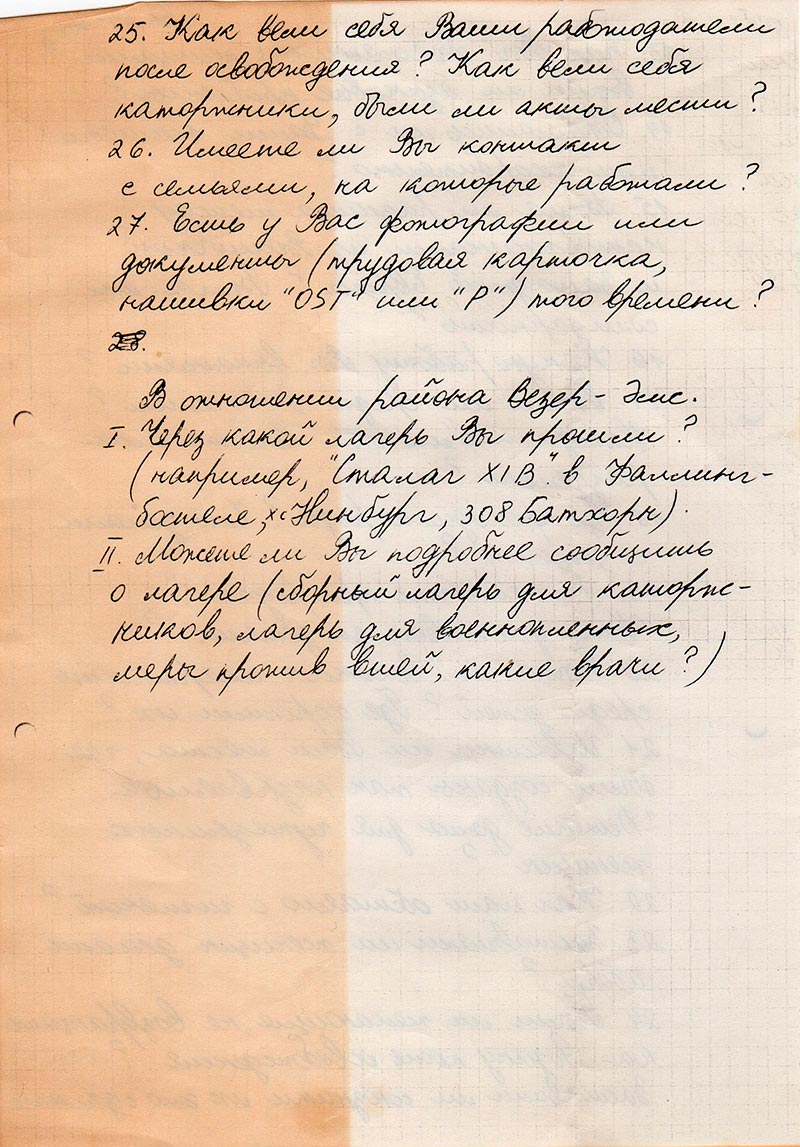 25. Как вели себя Ваши работодатели
после освобождения? Как вели себя
каторжники, были ли акты мести?
26. Имеете ли Вы контакт
с семьями, на которые работали?
27. Есть у Вас фотографии или
документы (трудовая карточка,
нашивки "OST" или "P") того времени?
28.
В отношении района Везер-Эмс.
I. Через какой лагерь Вы прошли?
(например, "Сталаг XI B" в Фаллинг-
бостеле, Нинбург, 308 Батхорн).
II. Можете ли Вы подробнее сообщить
о лагере (сборный лагерь для каторж-
ников, лагерь для военнопленных,
меры против вшей, какие врачи?)